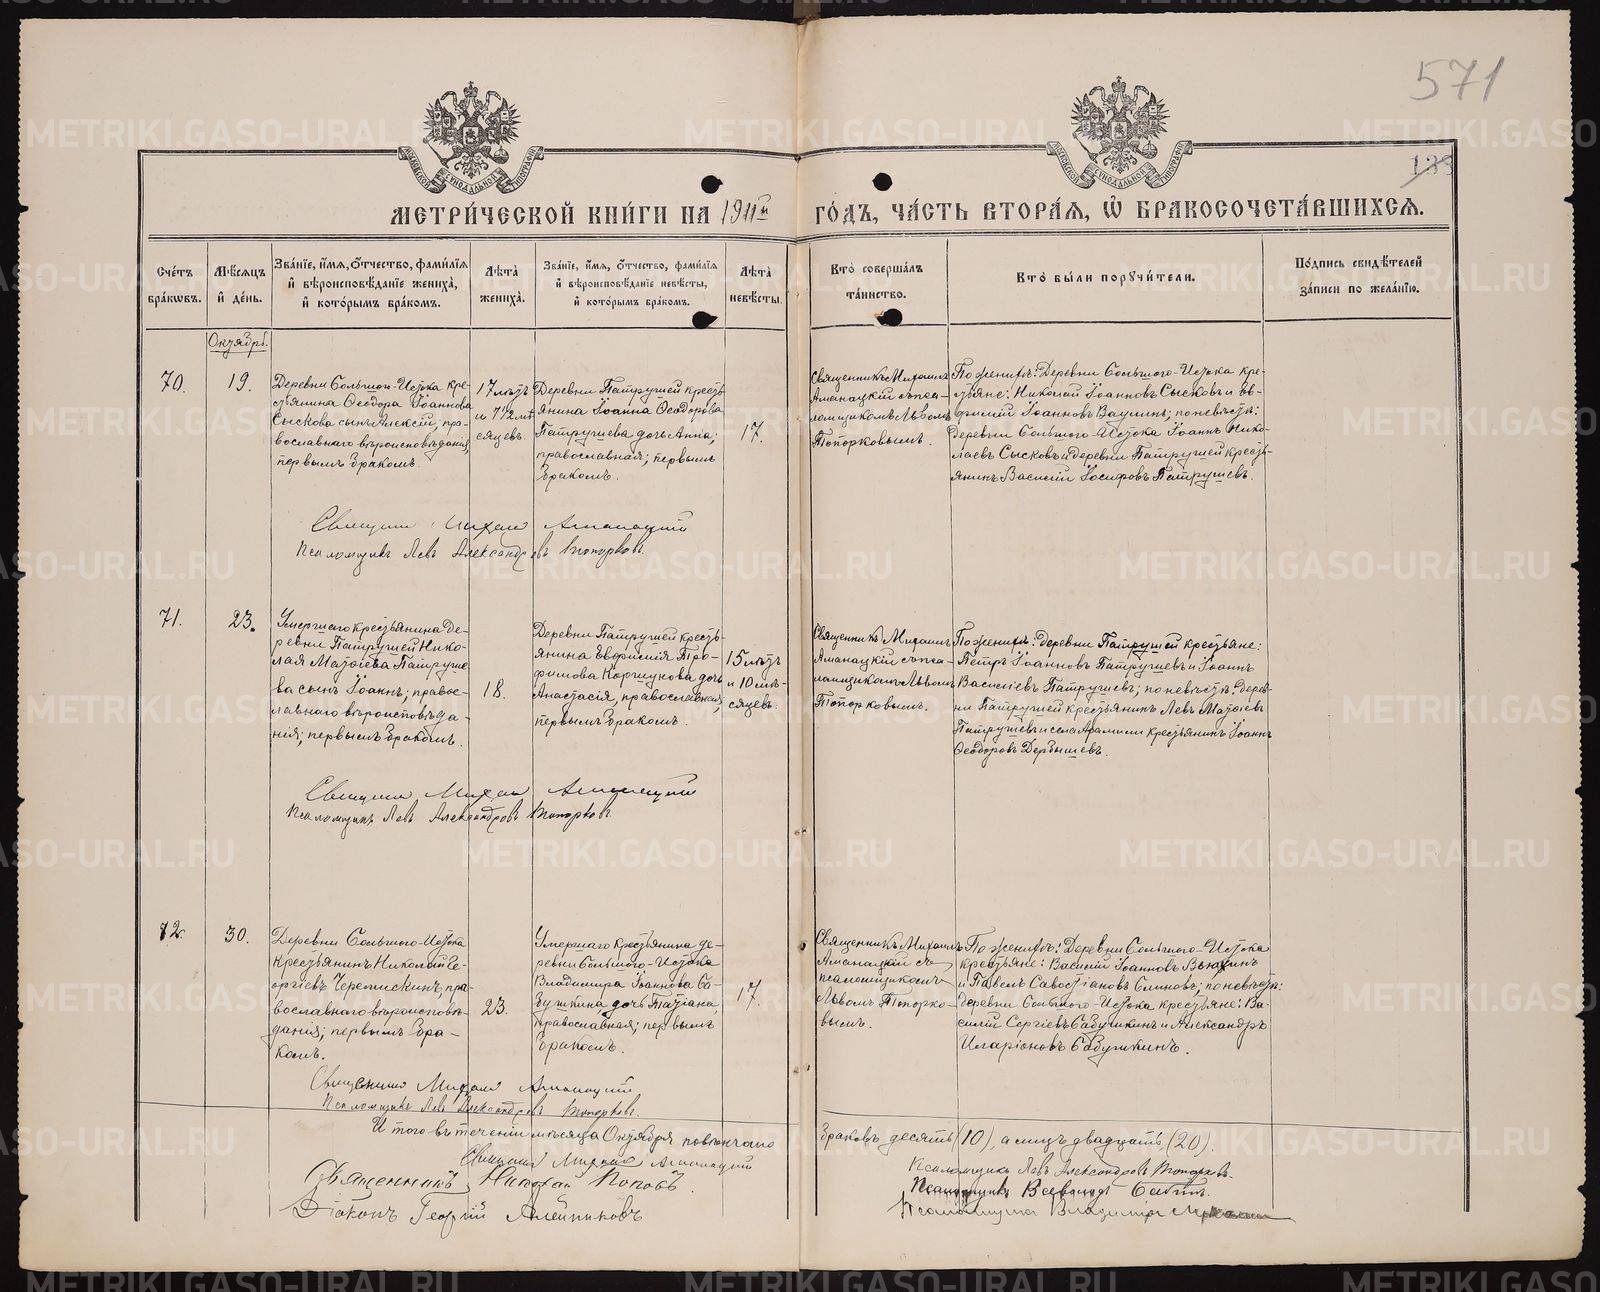 571
133
МЕТРИ́ЧЕСКОЙ КНИ́ГИ НА 1911й ГО́ДЪ, ЧА́СТЬ ВТОРА́Я, Ѡ БРАКОСОЧЕТА́ВШИХСЯ.
Сче́тъ бра́кѡвъ.
Мѣ́сяцъ и де́нь.
Зва́нїе, и́мя, ѻ́тчество, фами́лїя и вѣроисповѣ́данїе жениха̀, и кото́рымъ бра́комъ.
Лѣта̀ жениха̀.
Зва́нїе, и́мя, ѻ́тчество, фами́лїя и вѣроисповѣ́данїе невѣ́сты, и кото́рымъ бра́комъ.
Лѣта̀ невѣ́сты.
Кто̀ соверша́лъ та́инство.
Кто̀ бы́ли порꙋчи́тели.
По́дпись свидѣ́телей за́писи по жела́нїю.
Октябрь.
70.
19.
Деревни Большого-Истока кре-
стьянина Ѳеодора Іоаннова
Сыскова сынъ Алексій, пра-
вославнаго вѣроисповѣданія,
первымъ бракомъ.
17 лѣтъ
и 7½ мѣ-
сяцевъ.
Деревни Патрушей кресть-
янина Іоанна Ѳеодорова
Патрушева дочь Анна;
православная; первымъ
бракомъ.
17.
Священникъ Михаилъ
Аманацкій съ пса-
ломщикомъ Львомъ
Топорковымъ.
По женихѣ: Деревни Большого-Истока кре-
стьяне: Николай Іоанновъ Сысковъ и Ев-
фимій Іоанновъ Ваулинъ; по невѣстѣ:
Деревни Большого-Истока Іоаннъ Нико-
лаевъ Сысковъ и деревни Патрушей кресть-
янинъ Василій Іосифовъ Патрушевъ.
Священникъ Михаилъ Аманацкій
Псаломщикъ Левъ Александровъ Топорковъ.
71.
23.
Умершаго крестьянина де-
ревни Патрушей Нико-
лая Матѳіева Патруше-
ва сынъ Іоаннъ; правос-
лавнаго вѣроисповѣда-
нія; первымъ бракомъ.
18.
Деревни Патрушей кресть-
янина Евфимія Тро-
фимова Коршунова дочь
Анастасія, православная,
первымъ бракомъ.
15 лѣтъ
и 10 мѣ-
сяцевъ.
Священникъ Михаилъ
Аманацкій съ пса-
ломщикомъ Львомъ
Топорковымъ.
По женихѣ: деревни Патрушей крестьяне:
Петръ Іоанновъ Патрушевъ и Іоаннъ
Василіевъ Патрушевъ; по невѣстѣ: дерев-
ни Патрушей крестьянинъ Левъ Матѳіевъ
Патрушевъ и села Арамили крестьянинъ Іоаннъ
Ѳеодоровъ Дербышевъ.
Священникъ Михаилъ Аманацкій
Псаломщикъ Левъ Александровъ Топорковъ
72.
30.
Деревни Большого-Истока
крестьянинъ Николай Ге-
оргіевъ Черепискинъ, пра-
вославнаго вѣроисповѣ-
данія; первымъ бра-
комъ.
23.
Умершаго крестьянина де-
ревни Большого-Истока
Владимира Іоаннова Ба-
бушкина, дочь Татіана,
православная; первымъ
бракомъ.
17.
Священникъ Михаилъ
Аманацкій съ
псаломщикомъ
Львомъ Топорко-
вымъ.
По женихѣ: Деревни Большого-Истока
крестьяне: Василій Іоанновъ Вьюхинъ
и Павелъ Савостіановъ Блиновъ; по невѣстѣ:
Деревни Большого-Истока крестьяне: Ва-
силій Сергіевъ Бабушкинъ и Александръ
Иларіоновъ Бабушкинъ.
Священникъ Михаилъ Аманацкій
Псаломщикъ Левъ Александровъ Топорковъ.
Итого въ теченіи мѣсяца Октября повѣнчано браковъ десять (10), а лицъ двадцать (20).
Священникъ Михаилъ Аманацкій
Священникъ Николай Поповъ.
Діаконъ Георгій Алейниковъ
Псаломщикъ Левъ Александровъ Топорковъ.
Псаломщикъ Всеволодъ Бабинъ.
Псаломщикъ Владимиръ